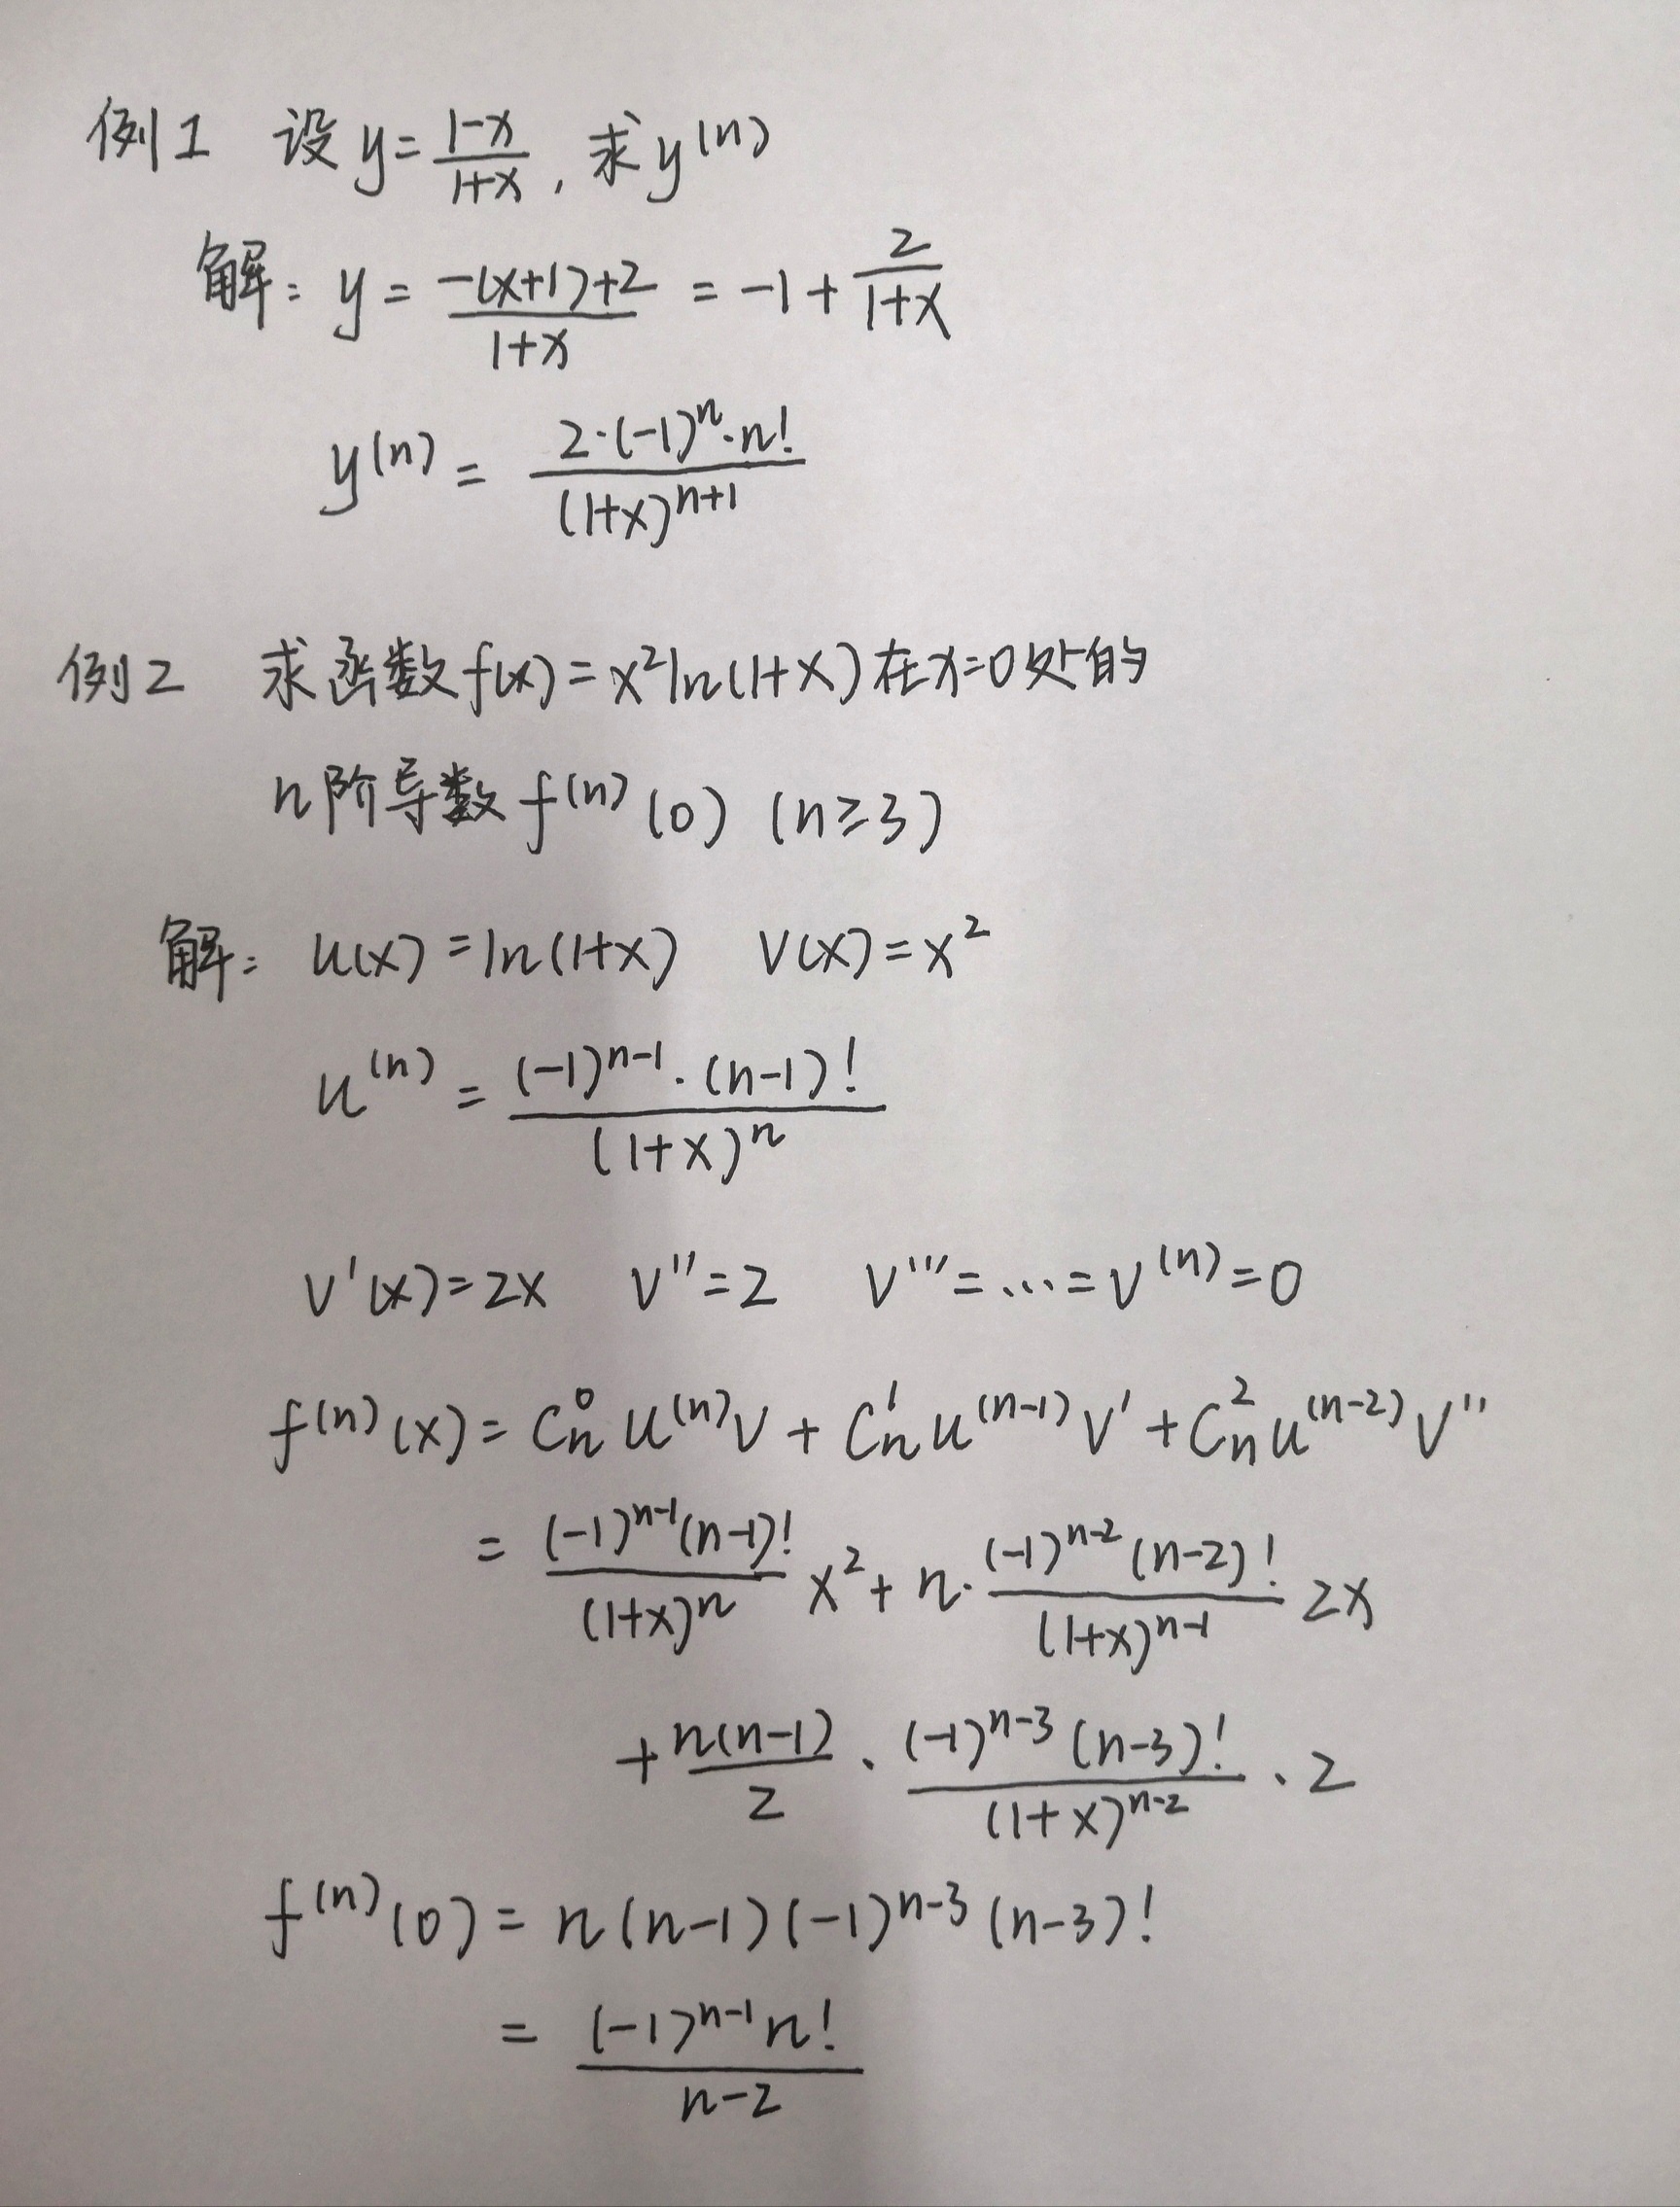 例1 设 y = \frac{1-x}{1+x}, 求 y^{(n)}
解: y = \frac{-(x+1)+2}{1+x} = -1 + \frac{2}{1+x}
y^{(n)} = \frac{2·(-1)^n·n!}{(1+x)^{n+1}}
例2 求函数 f(x) = x^2 ln(1+x) 在 x=0 处的
n阶导数 f^{(n)}(0) (n≥3)
解: u(x) = ln(1+x) v(x) = x^2
u^{(n)} = \frac{(-1)^{n-1}·(n-1)!}{(1+x)^n}
v'(x) = 2x v'' = 2 v''' = … = v^{(n)} = 0
f^{(n)}(x) = C_n^0 u^{(n)} v + C_n^1 u^{(n-1)} v' + C_n^2 u^{(n-2)} v''
= \frac{(-1)^{n-1}(n-1)!}{(1+x)^n} x^2 + n·\frac{(-1)^{n-2}(n-2)!}{(1+x)^{n-1}} 2x
+ \frac{n(n-1)}{2}·\frac{(-1)^{n-3}(n-3)!}{(1+x)^{n-2}}·2
f^{(n)}(0) = n(n-1)(-1)^{n-3}(n-3)!
= \frac{(-1)^{n-1} n!}{n-2}